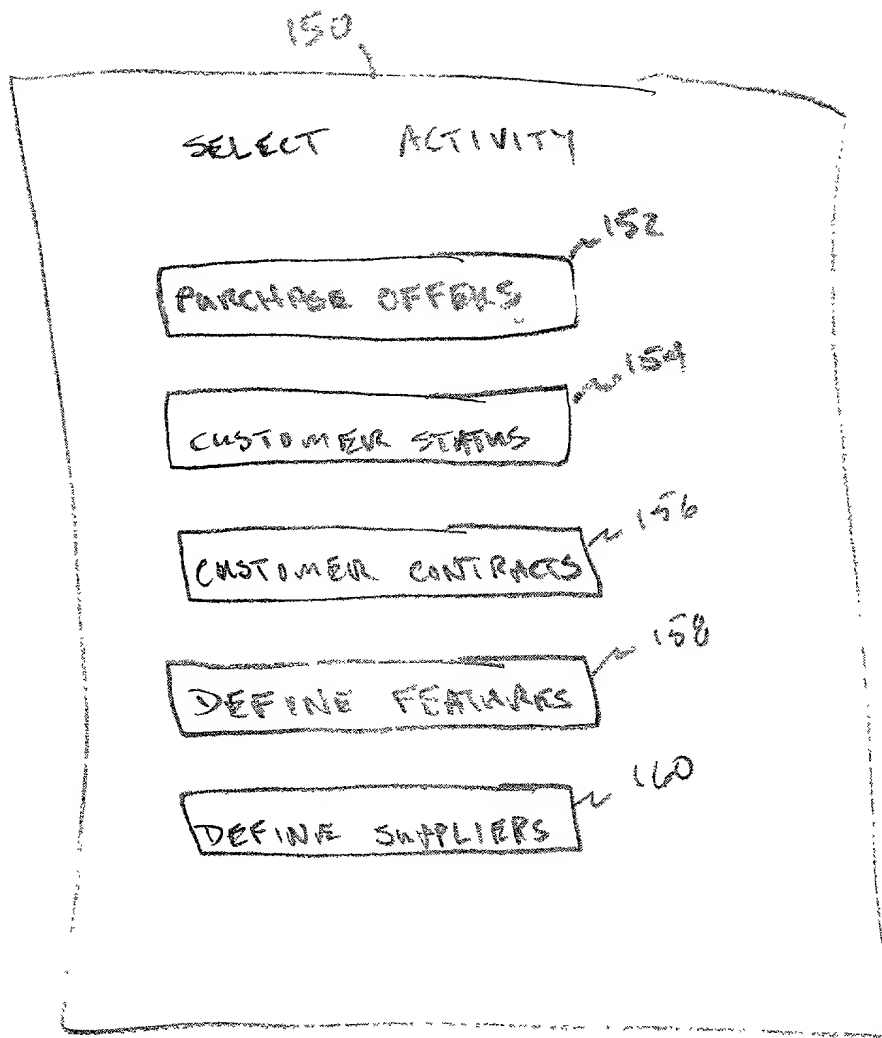 150
SELECT ACTIVITY
152
PURCHASE OFFERS
154
CUSTOMER STATUS
156
CUSTOMER CONTRACTS
158
DEFINE FEATURES
160
DEFINE SUPPLIERS